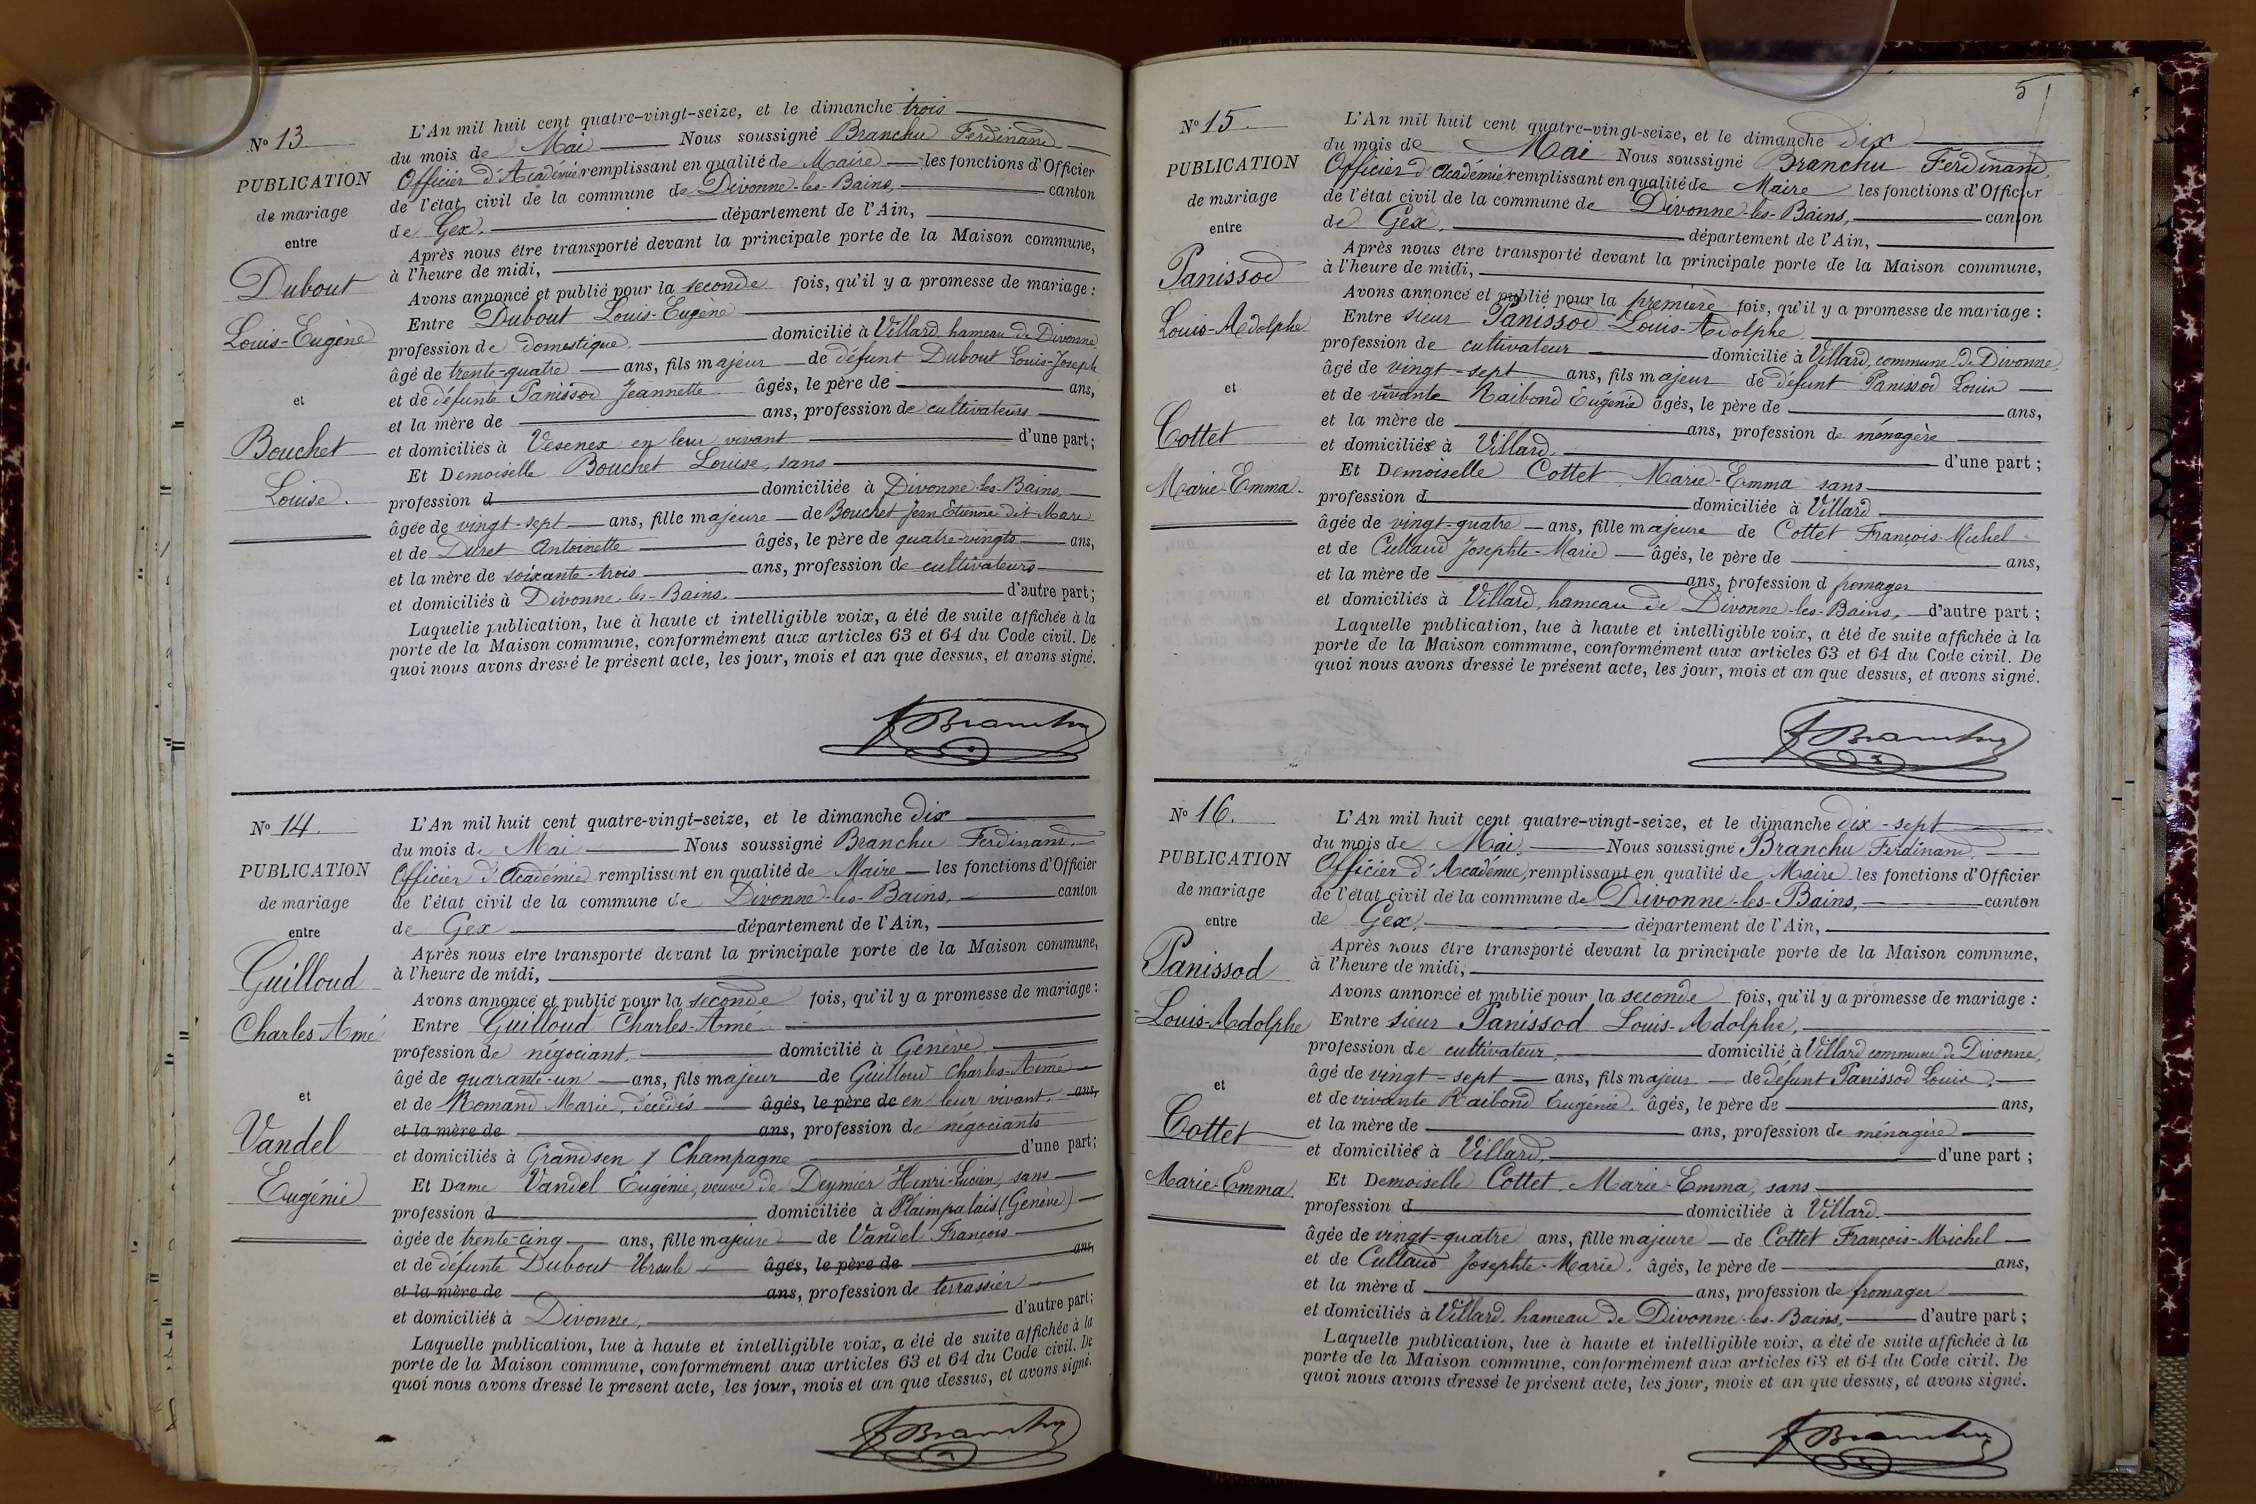 N° 13
PUBLICATION
de mariage
entre
Dubout
Louis-Eugène
et
Bouchet
Louise.
L'An mil huit cent quatre-vingt-seize, et le dimanche trois
du mois de Mai Nous soussigné Branchu Ferdinand
Officier d'Académie remplissant en qualité de Maire les fonctions d'Officier
de l'état civil de la commune de Divonne-les-Bains, canton
de Gex. département de l'Ain,
Après nous être transporté devant la principale porte de la Maison commune,
à l'heure de midi,
Avons annoncé et publié pour la seconde fois, qu'il y a promesse de mariage :
Entre Dubout Louis-Eugène
profession de domestique. domicilié à Villard hameau de Divonne
âgé de trente-quatre ans, fils majeur de défunt Dubout Louis-Joseph
et de défunte Panissod Jeannette âgés, le père de ans,
et la mère de ans, profession de cultivateurs
et domiciliés à Vesenex en leur vivant d'une part;
Et Demoiselle Bouchet Louise, sans
profession d domiciliée à Divonne-les-Bains,
âgée de vingt-sept ans, fille majeure de Bouchet Jean Etienne dit Marc
et de Duret Antoinette âgés, le père de quatre-vingts ans,
et la mère de soixante-trois ans, profession de cultivateurs
et domiciliés à Divonne-les-Bains. d'autre part;
Laquelle publication, lue à haute et intelligible voix, a été de suite affichée à la
porte de la Maison commune, conformément aux articles 63 et 64 du Code civil. De
quoi nous avons dressé le présent acte, les jour, mois et an que dessus, et avons signé.
F Branchu
N° 14.
PUBLICATION
de mariage
entre
Guilloud
Charles Amé
et
Vandel
Eugénie
L'An mil huit cent quatre-vingt-seize, et le dimanche dix
du mois de Mai Nous soussigné Branchu Ferdinand,
Officier d'Académie remplissant en qualité de Maire les fonctions d'Officier
de l'état civil de la commune de Divonne-les-Bains, canton
de Gex département de l'Ain,
Après nous etre transporté devant la principale porte de la Maison commune,
à l'heure de midi,
Avons annoncé et publié pour la seconde fois, qu'il y a promesse de mariage :
Entre Guilloud Charles-Amé
profession de négociant. domicilié à Genève
âgé de quarante-un ans, fils majeur de Guilloud Charles-Aimé
et de Romand Marie, décédés âgés, le père de en leur vivant. ans,
et la mère de ans, profession de négociants
et domiciliés à Grandsen / Champagne d'une part;
Et Dame Vandel Eugénie, veuve de Deymier Henri-Lucien, sans
profession d domiciliée à Plaimpalais (Genève)
âgée de trente-cinq ans, fille majeure de Vandel François
et de défunte Dubout Ursule âgés, le père de ans,
et la mère de ans, profession de terrassier
et domiciliés à Divonne, d'autre part;
Laquelle publication, lue à haute et intelligible voix, a été de suite affichée à la
porte de la Maison commune, conformément aux articles 63 et 64 du Code civil. De
quoi nous avons dressé le present acte, les jour, mois et an que dessus, et avons signé.
F Branchu
5
N° 15.
PUBLICATION
de mariage
entre
Panissod
Louis-Adolphe
et
Cottet
Marie-Emma.
L'An mil huit cent quatre-vingt-seize, et le dimanche dix
du mois de Mai Nous soussigné Branchu Ferdinand,
Officier d'Académie remplissant en qualité de Maire les fonctions d'Officier
de l'état civil de la commune de Divonne-les-Bains, canton
de Gex, département de l'Ain,
Après nous être transporté devant la principale porte de la Maison commune,
à l'heure de midi,
Avons annoncé et publié pour la première fois, qu'il y a promesse de mariage :
Entre sieur Panissod Louis-Adolphe
profession de cultivateur domicilié à Villard, commune de Divonne,
âgé de vingt-sept ans, fils majeur de défunt Panissod Louis
et de vivante Raibond Eugénie âgés, le père de ans,
et la mère de ans, profession de ménagère
et domiciliés à Villard. d'une part ;
Et Demoiselle Cottet Marie-Emma sans
profession d domiciliée à Villard
âgée de vingt-quatre ans, fille majeure de Cottet François-Michel
et de Cullaud Josephte-Marie âgés, le père de ans,
et la mère de ans, profession d fromager
et domiciliés à Villard, hameau de Divonne-les-Bains, d'autre part ;
Laquelle publication, lue à haute et intelligible voix, a été de suite affichée à la
porte de la Maison commune, conformément aux articles 63 et 64 du Code civil. De
quoi nous avons dressé le présent acte, les jour, mois et an que dessus, et avons signé.
F Branchu
N° 16.
PUBLICATION
de mariage
entre
Panissod
Louis-Adolphe
et
Cottet
Marie-Emma
L'An mil huit cent quatre-vingt-seize, et le dimanche dix-sept
du mois de Mai. Nous soussigné Branchu Ferdinand,
Officier d'Académie, remplissant en qualité de Maire les fonctions d'Officier
de l'état civil de la commune de Divonne-les-Bains, canton
de Gex, département de l'Ain,
Après nous être transporté devant la principale porte de la Maison commune,
à l'heure de midi,
Avons annoncé et publié pour la seconde fois, qu'il y a promesse de mariage :
Entre sieur Panissod Louis-Adolphe,
profession de cultivateur, domicilié à Villard commune de Divonne,
âgé de vingt-sept ans, fils majeur de défunt Panissod Louis,
et de vivante Raibond Eugénie. âgés, le père de ans,
et la mère de ans, profession de ménagère
et domiciliés à Villard, d'une part ;
Et Demoiselle Cottet Marie-Emma, sans
profession d domiciliée à Villard.
âgée de vingt-quatre ans, fille majeure de Cottet François-Michel
et de Cullaud Josephte-Marie. âgés, le père de ans,
et la mère d ans, profession de fromager
et domiciliés à Villard, hameau de Divonne-les-Bains, d'autre part ;
Laquelle publication, lue à haute et intelligible voix, a été de suite affichée à la
porte de la Maison commune, conformément aux articles 63 et 64 du Code civil. De
quoi nous avons dressé le présent acte, les jour, mois et an que dessus, et avons signé.
F Branchu